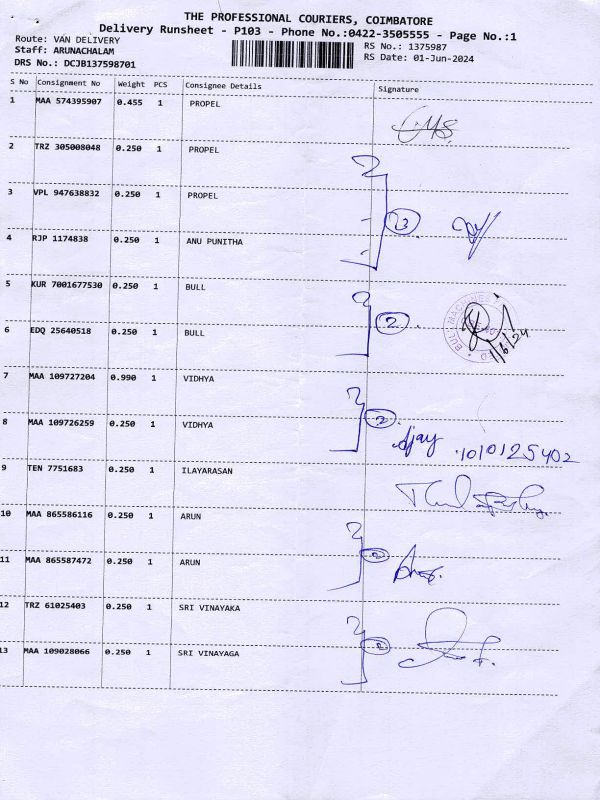 THE PROFESSIONAL COURIERS, COIMBATORE
Delivery Runsheet - P103 - Phone No.:0422-3505555 - Page No.:1
Route: VAN DELIVERY
RS No.: 1375987
Staff: ARUNACHALAM
RS Date: 01-Jun-2024
DRS No.: DCJB137598701
S No Consignment No Weight PCS Consignee Details Signature
1 MAA 574395907 0.455 1 PROPEL
2 TRZ 305008048 0.250 1 PROPEL
3 VPL 947638832 0.250 1 PROPEL
3
4 RJP 1174838 0.250 1 ANU PUNITHA
5 KUR 7001677530 0.250 1 BULL
2
6 EDQ 25640518 0.250 1 BULL
1/6/24
7 MAA 109727204 0.990 1 VIDHYA
2
8 MAA 109726259 0.250 1 VIDHYA
Ajay 1010125402
9 TEN 7751683 0.250 1 ILAYARASAN
10 MAA 865586116 0.250 1 ARUN
2
11 MAA 865587472 0.250 1 ARUN
12 TRZ 61025403 0.250 1 SRI VINAYAKA
2
13 MAA 109028066 0.250 1 SRI VINAYAGA